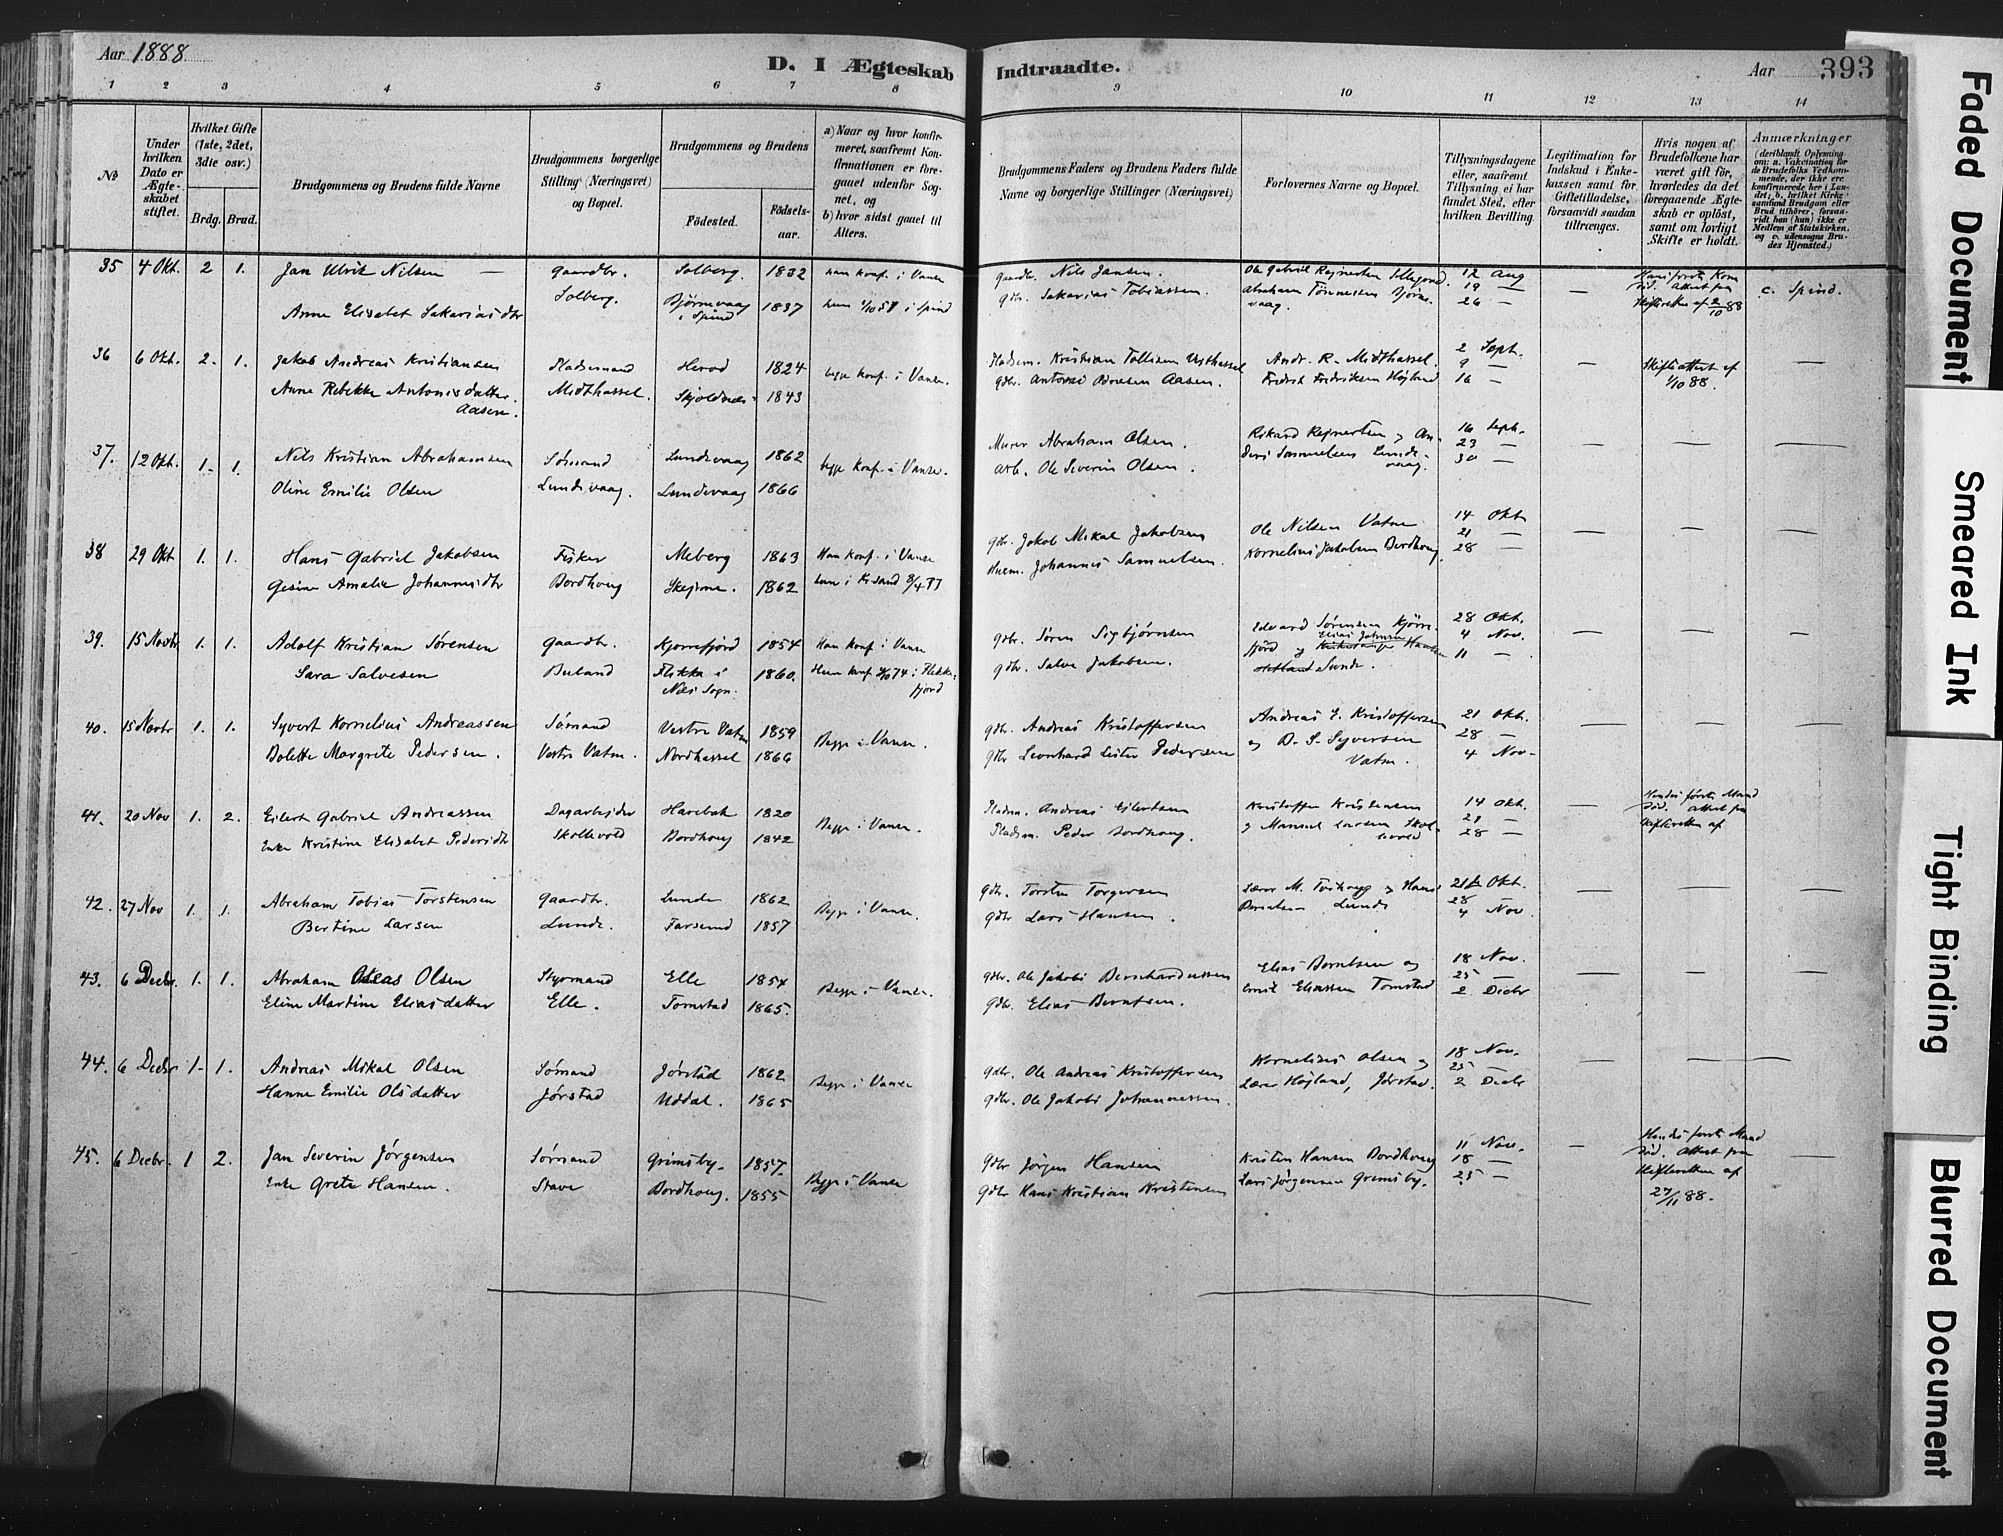 Aar 1888.
D. I Ægteskab Indtraadte.
Aar 393
1 2 3 4 5 6 7 8 9 10 11 12 13 14
№
Under hvilken Dato er Ægteskabet stiftet.
Hvilket Gifte (1ste, 2det, 3die osv.)
Brdg. Brud.
Brudgommens og Brudens fulde Navne
Brudgommens borgerlige Stilling (Næringsvei) og Bopæl.
Brudgommens og Brudens
Fødested. Fødselsaar.
a) Naar og hvor konfirmeret, saafremt Konfirmationen er foregaaet udenfor Sognet, og
b) hvor sidst gaaet til Alters.
Brudgommens Faders og Brudens Faders fulde Navne og borgerlige Stillinger (Næringsvei)
Forlovernes Navne og Bopæl.
Tillysningsdagene eller, saafremt Tillysning ei har fundet Sted, efter hvilken Bevilling.
Legitimation for Indskud i Enkekassen samt for Giftetilladelse, forsaavidt saadan tiltrænges.
Hvis nogen af Brudefolkene har været gift før, hvorledes da det foregaaende Ægteskab er opløst, samt om lovligt Skifte er holdt.
Anmærkninger
(deriblandt Oplysning om: a. Vaccination for de Brudefolks Vedkommende, der ikke ere konfirmerede her i Landet; b. hvilket Kirkesamfund Brudgom eller Brud tilhører, forsaavidt han (hun) ikke er Medlem af Statskirken. og c. udensogns Brudes Hjemsted.)
35 4 Okt. 2 1. Jan Ulrik Nilsen — Gaardbr. Solberg. 1832 han konf. i Vanse Gaardbr. Nils Jansen. 12 Aug Hans første Kone
Anne Elisabet Sakariasdtr Solberg. Bjørnevaag i Spind 1837 hun i Spind gdbr. Sakarias Tobiassen. Abraham Tønnessen Bjørnevaag. 19 — 26 — — død. Attest fra Skifteretten af 2/10 88 c. Spind.
36 6 Okt. 2. 1. Jakob Andreas Kristiansen Pladsmand Herod 1824 begge konf. i Vanse. Pladsm. Kristian Tollisen Andr. R. Midthassel. 2 Sept. — Skifteattest af —
Anne Rebekke Antonisdatter Aasen. Midthassel. Skjoldnes 1843 gdbr. Aasen. Fredrik Fredriksen Højland 9 — 16 — 1/10 88.
37. 12 Okt. 1. 1. Nils Kristian Abrahamsen Sømand Lundevaag 1862 begge konf. i Vanse. Murer Abraham Olsen. Rikard Reinertsen og 16 Sept. — — —
Oline Emilie Olsen Lundevaag. Lundevaag 1866 arb. Ole Severin Olsen. Samuelsen Lundevaag. 23 — 30 —
38 29 Okt 1. 1. Hans Gabriel Jakobsen Fisker Meberg 1863 Han konf. i Vanse gdbr. Jakob Mikal Jakobsen Ole Nilsen Vatne 14 Okt — — —
Gesine Amalie Johannisdtr Bordhoug Skeime. 1862 hun i Kr.sand 8/4 77 Johannes Samuelsen. Kornelius Jakobsen Bordhoug 21 — 28 —
39. 15 Novbr 1. 1. Adolf Kristian Sørensen Gaardbr. Kjørrefjord 1854 Han konf. i Vanse gdbr. Søren Sigbjørnsen Edvard Sørensen Kjørrefjord og 28 Okt. — — —
Sara Salvesen Buland Flikka i Næs Sogn. 1860. Hun konf. i Flekkefjord gdbr. Salve Jakobsen. Sunde. 4 Nov. 11 —
40. 15 Novbr 1. 1. Syvert Kornelius Andreassen Sømand Vestre Vatne 1859 Begge i Vanse. gdbr. Andreas Kristoffersen Andreas E. Kristoffersen 21 Okt. — — —
Bolette Margrete Pedersen. Vestre Vatne. Nordhassel 1866 gdbr. Leonhard Lister Pedersen og B. S. Syversen Vatne. 28 — 4 Nov.
41. 20 Nov 1. 2. Eilert Gabriel Andreassen Dagarbejder Harebak 1820 Begge i Vanse. Pladsm. Andreas Eilertsen Kristoffer Kristensen 14 Okt. — Hendes første Mand
Enke Kristine Elisabet Pedersdtr Skolhvold Bordhoug 1842 Pladsm. Peder Bordhoug. og Manuel Larsen Skolhvold 21 — 28 — død. Attest fra Skifteretten af
42. 27 Nov 1. 1. Abraham Tobias Torstensen Gaardbr. Lunde 1862 Begge i Vanse. gdbr. Torsten Torgersen Lærer M. og Hans 21 Okt. — — —
Bertine Larsen Lunde. Farsund 1857 gdbr Lars Hansen. Berntsen Lunde 28 4 Nov.
43. 6 Decbr. 1. 1. Abraham Oseas Olsen Styrmand Elle 1854 Begge i Vanse. gdbr. Ole Jakob Bernhardussen Elias Berntsen og 18 Nov. — — —
Eline Martine Eliasdatter Elle. Tomstad 1865. gdbr. Elias Berntsen. Emil Eliassen Tomstad 25 — 2 Decbr
44. 6 Decbr 1. 1. Andreas Mikal Olsen Sømand Jørstad 1862 Begge i Vanse gdbr. Ole Andreas Kristoffersen Kornelius Olsen og 18 Nov. — — —
Hanne Emilie Olsdatter Jørstad Uddal. 1865 gdbr. Ole Jakob Johannessen. Lærer Højland, Jørstad. 25 — 2 Decbr
45. 6 Decbr. 1 2. Jan Severin Jørgensen Sømand Grimsby. 1857. Begge i Vanse gdbr Jørgen Hansen Kristen Hansen Bordhoug 11 Nov. — Hendes første Mand —
Enke Grete Hansen. Stave Bordhoug. 1855 gdbr Hans Kristian Kristensen Lars Jørgensen Grimsby. 18 — 25 — død. Attest fra Skifteretten af 27/11 88.
Faded Document
Smeared Ink
Tight Binding
Blurred Document